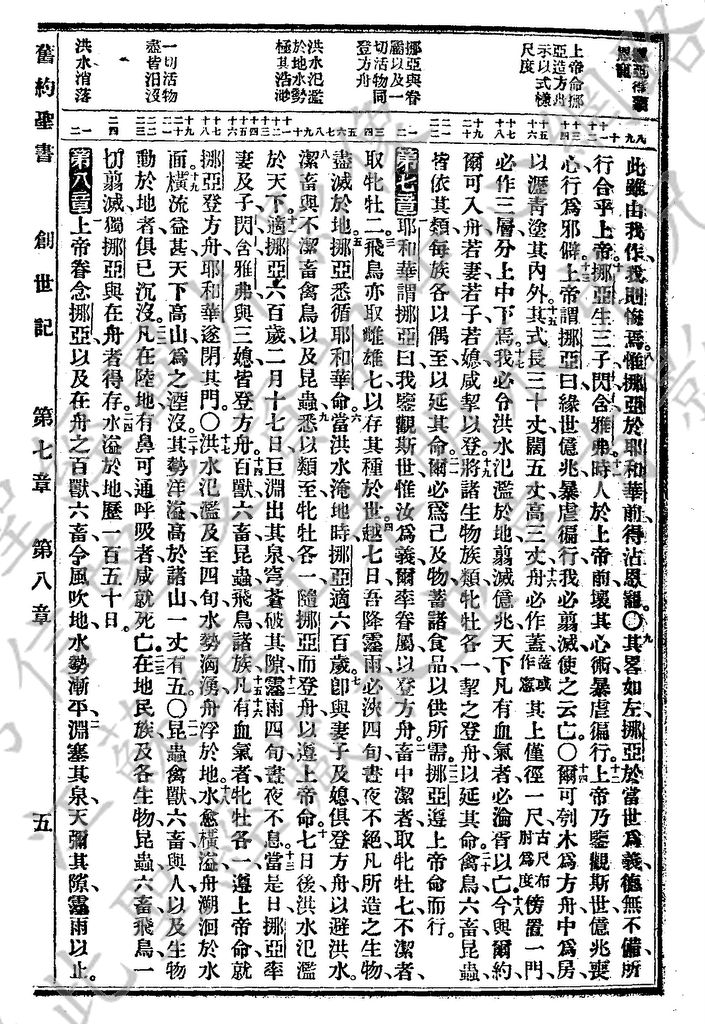 此雖由我作、我則悔焉、惟挪亞於耶和華前得沾恩寵。〇其畧如左、挪亞於當世爲義、德無不備、所
行合乎上帝、挪亞生三子、閃含雅弗、時人於上帝前壞其心術、暴虐徧行、上帝乃鑒觀斯世、億兆喪
心、行爲邪僻、上帝謂挪亞曰、緣世億兆暴虐徧行、我必翦滅、使之云亡。〇爾可刳木爲方舟、中爲房、
以瀝青塗其內外、其式長三十丈、闊五丈、高三丈、舟必作蓋、蓋或作窻其上僅徑一尺、古尺布肘爲度傍置一門、
必作三層、分上中下焉、我必令洪水氾濫於地、翦滅億兆、天下凡有血氣者、必淪胥以亡、今與爾約、
爾可入舟、若妻若子若媳、咸挈以登、將諸生物族類、牝牡各一、挈之登舟、以延其命、禽鳥六畜昆蟲、
皆依其類、每族各以偶至、以延其命、爾必爲己及物、蓄諸食品、以供所需、挪亞遵上帝命而行。
第七章 耶和華謂挪亞曰、我鑒觀斯世、惟汝爲義、爾率眷屬以登方舟、畜中潔者、取牝牡七、不潔者、
取牝牡二、飛鳥亦取雌雄七、以存其種於世、越七日、吾降霪雨、必浹四旬、晝夜不絕、凡所造之生物、
盡滅於地、挪亞悉循耶和華命、當洪水淹地時、挪亞適六百歲、卽與妻子及媳、俱登方舟、以避洪水、
潔畜與不潔畜、禽鳥以及昆蟲、悉以類至、牝牡各一、隨挪亞而登舟、以遵上帝命、七日後洪水氾濫
於天下、適挪亞六百歲、二月十七日、巨淵出其泉、穹蒼破其隙、霪雨四旬、晝夜不息、當是日挪亞率
妻及子閃含雅弗與三媳、皆登方舟、百獸六畜、昆蟲飛鳥諸族、凡有血氣者、牝牡各一、遵上帝命、就
挪亞登方舟、耶和華遂閉其門。〇洪水氾濫、及至四旬、水勢洶湧、舟浮於地、水愈橫溢、舟溯洄於水
面、橫流益甚、天下高山爲之湮沒、其勢洋溢、高於諸山一丈有五。〇昆蟲禽獸六畜、與人以及生物
動於地者、俱已沉沒、凡在陸地、有鼻可通呼吸者、咸就死亡、在地民族、及各生物、昆蟲六畜飛鳥、一
切翦滅、獨挪亞與在舟者得存、水溢於地、歷一百五十日。
第八章 上帝眷念挪亞、以及在舟之百獸六畜、令風吹地、水勢漸平、淵塞其泉、天彌其隙、霪雨以止、
上帝命挪亞造方舟示以式樣尺度
挪亞與眷屬以及一切活物同登方舟
洪水氾濫於地水勢極其浩渺
一切活物盡皆汨沒
洪水消落
舊約聖書 創世記 第七章 第八章 五